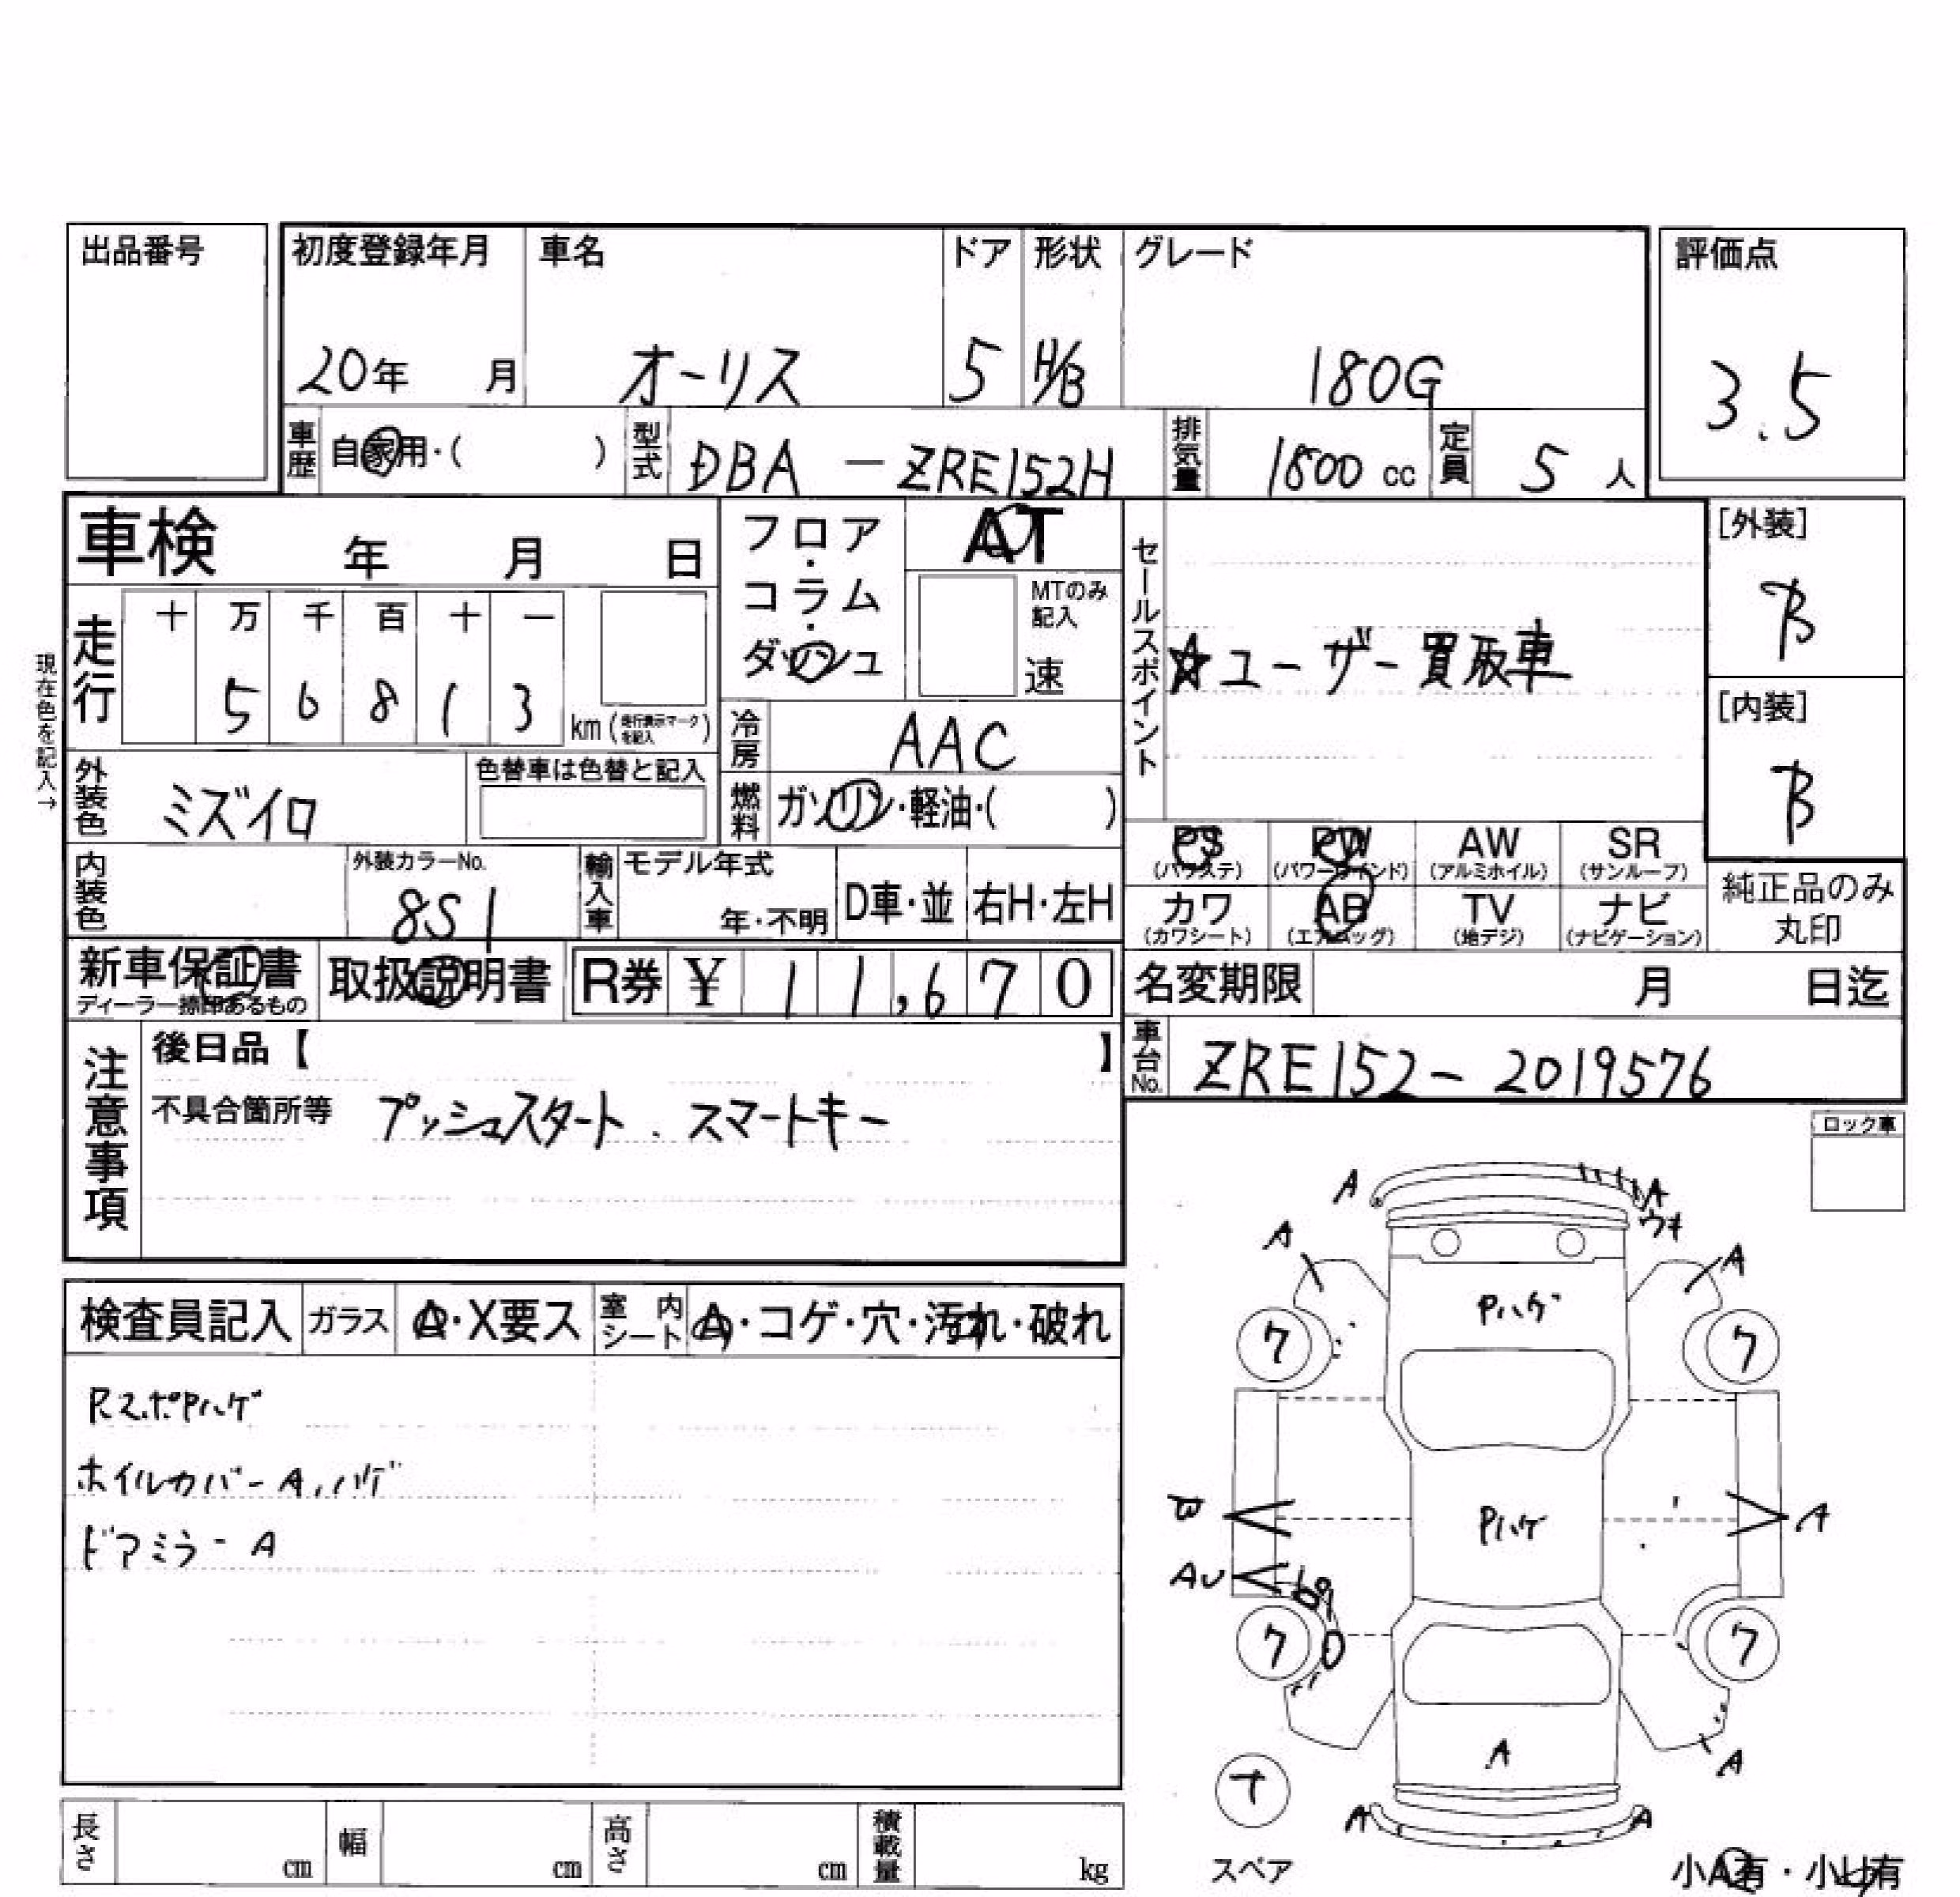 出品番号
初度登録年月 車名 ドア 形状 グレード 評価点
20年 月 オーリス 5 H/B 180G 3.5
車歴 自家用・( ) 型式 DBA - ZRE152H 排気量 1800 cc 定員 5 人
車検 年 月 日
フロア・コラム・ダッシュ
AT
MTのみ記入
速
セールスポイント
☆ユーザー買取車
[外装]
B
[内装]
B
現在色を記入→
走行 十 万 千 百 十 一
5 6 8 1 3 km (走行表示マークを記入)
冷房 AAC
外装色 ミズイロ 色替車は色替と記入
燃料 ガソリン・軽油・( )
PS (パワステ) PW (パワーウインド) AW (アルミホイル) SR (サンルーフ)
カワ (カワシート) AB (エアバッグ) TV (地デジ) ナビ (ナビゲーション)
純正品のみ丸印
内装色 外装カラーNo. 8S1 輸入車 モデル年式 年・不明 D車・並 右H・左H
新車保証書 ディーラー捺印あるもの 取扱説明書 R券 ¥ 11,670
名変期限 月 日迄
車台No. ZRE152- 2019576
注意事項
後日品【 】
不具合箇所等 プッシュスタート、スマートキー
ロック車
検査員記入 ガラス A・X要ス 室内シート A・コゲ・穴・汚れ・破れ
RスポPハゲ
ホイルカバーA,ハゲ
ドアミラーA
A A
ウキ
A A
Pハゲ
7 7
Pハゲ
A
AU
7 7
A
A
A A
スペア
小A有・小U有
長さ cm 幅 cm 高さ cm 積載量 kg